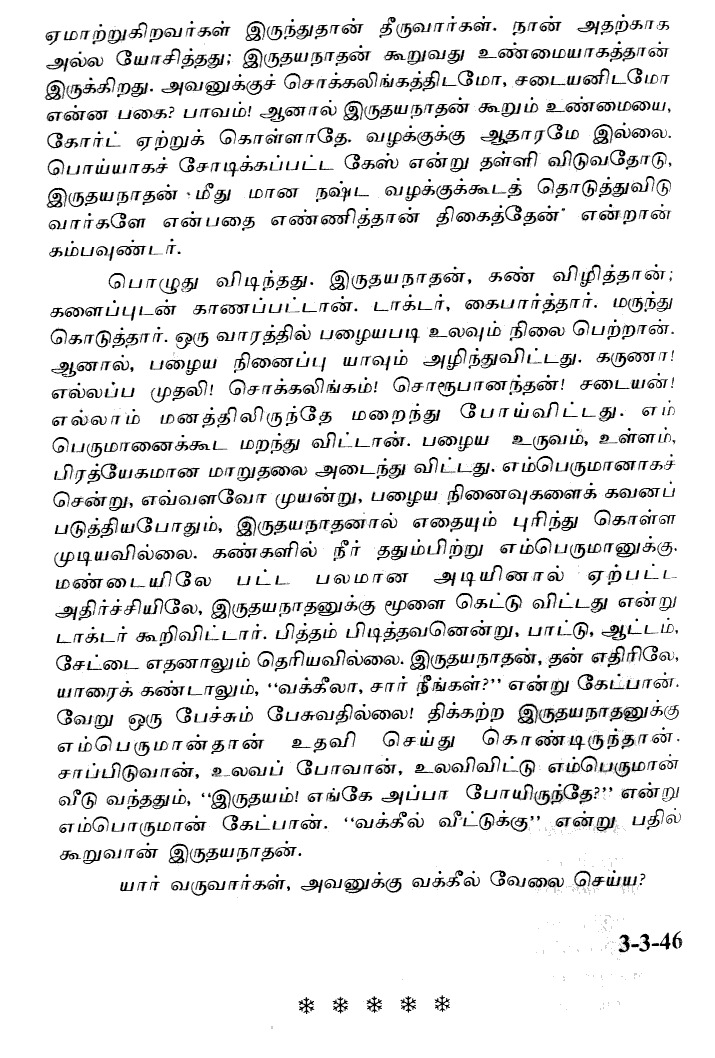 ஏமாற்றுகிறவர்கள் இருந்துதான் தீருவார்கள். நான் அதற்காக
அல்ல யோசித்தது; இருதயநாதன் கூறுவது உண்மையாகத்தான்
இருக்கிறது. அவனுக்குச் சொக்கலிங்கத்திடமோ, சடையனிடமோ
என்ன பகை? பாவம்! ஆனால் இருதயநாதன் கூறும் உண்மையை,
கோர்ட் ஏற்றுக் கொள்ளாதே. வழக்குக்கு ஆதாரமே இல்லை.
பொய்யாகச் சோடிக்கப்பட்ட கேஸ் என்று தள்ளி விடுவதோடு,
இருதயநாதன் மீது மான நஷ்ட வழக்குக்கூடத் தொடுத்துவிடு
வார்களே என்பதை எண்ணித்தான் திகைத்தேன்" என்றான்
கம்பவுண்டர்.
பொழுது விடிந்தது. இருதயநாதன், கண் விழித்தான்;
களைப்புடன் காணப்பட்டான். டாக்டர், கைபார்த்தார். மருந்து
கொடுத்தார். ஒரு வாரத்தில் பழையபடி உலவும் நிலை பெற்றான்.
ஆனால், பழைய நினைப்பு யாவும் அழிந்துவிட்டது. கருணா!
எல்லப்ப முதலி! சொக்கலிங்கம்! சொரூபானந்தன்! சடையன்!
எல்லாம் மனத்திலிருந்தே மறைந்து போய்விட்டது. எம்
பெருமானைக்கூட மறந்து விட்டான். பழைய உருவம், உள்ளம்,
பிரத்யேகமான மாறுதலை அடைந்து விட்டது. எம்பெருமானாகச்
சென்று, எவ்வளவோ முயன்று, பழைய நினைவுகளைக் கவனப்
படுத்தியபோதும், இருதயநாதனால் எதையும் புரிந்து கொள்ள
முடியவில்லை. கண்களில் நீர் ததும்பிற்று எம்பெருமானுக்கு.
மண்டையிலே பட்ட பலமான அடியினால் ஏற்பட்ட
அதிர்ச்சியிலே, இருதயநாதனுக்கு மூளை கெட்டு விட்டது என்று
டாக்டர் கூறிவிட்டார். பித்தம் பிடித்தவனென்று, பாட்டு, ஆட்டம்,
சேட்டை எதனாலும் தெரியவில்லை. இருதயநாதன், தன் எதிரிலே,
யாரைக் கண்டாலும், "வக்கீலா, சார் நீங்கள்?" என்று கேட்பான்.
வேறு ஒரு பேச்சும் பேசுவதில்லை! திக்கற்ற இருதயநாதனுக்கு
எம்பெருமான்தான் உதவி செய்து கொண்டிருந்தான்.
சாப்பிடுவான், உலவப் போவான், உலவிவிட்டு எம்பெருமான்
வீடு வந்ததும், "இருதயம்! எங்கே அப்பா போயிருந்தே?" என்று
எம்பொருமான் கேட்பான். "வக்கீல் வீட்டுக்கு" என்று பதில்
கூறுவான் இருதயநாதன்.
யார் வருவார்கள், அவனுக்கு வக்கீல் வேலை செய்ய?
3-3-46